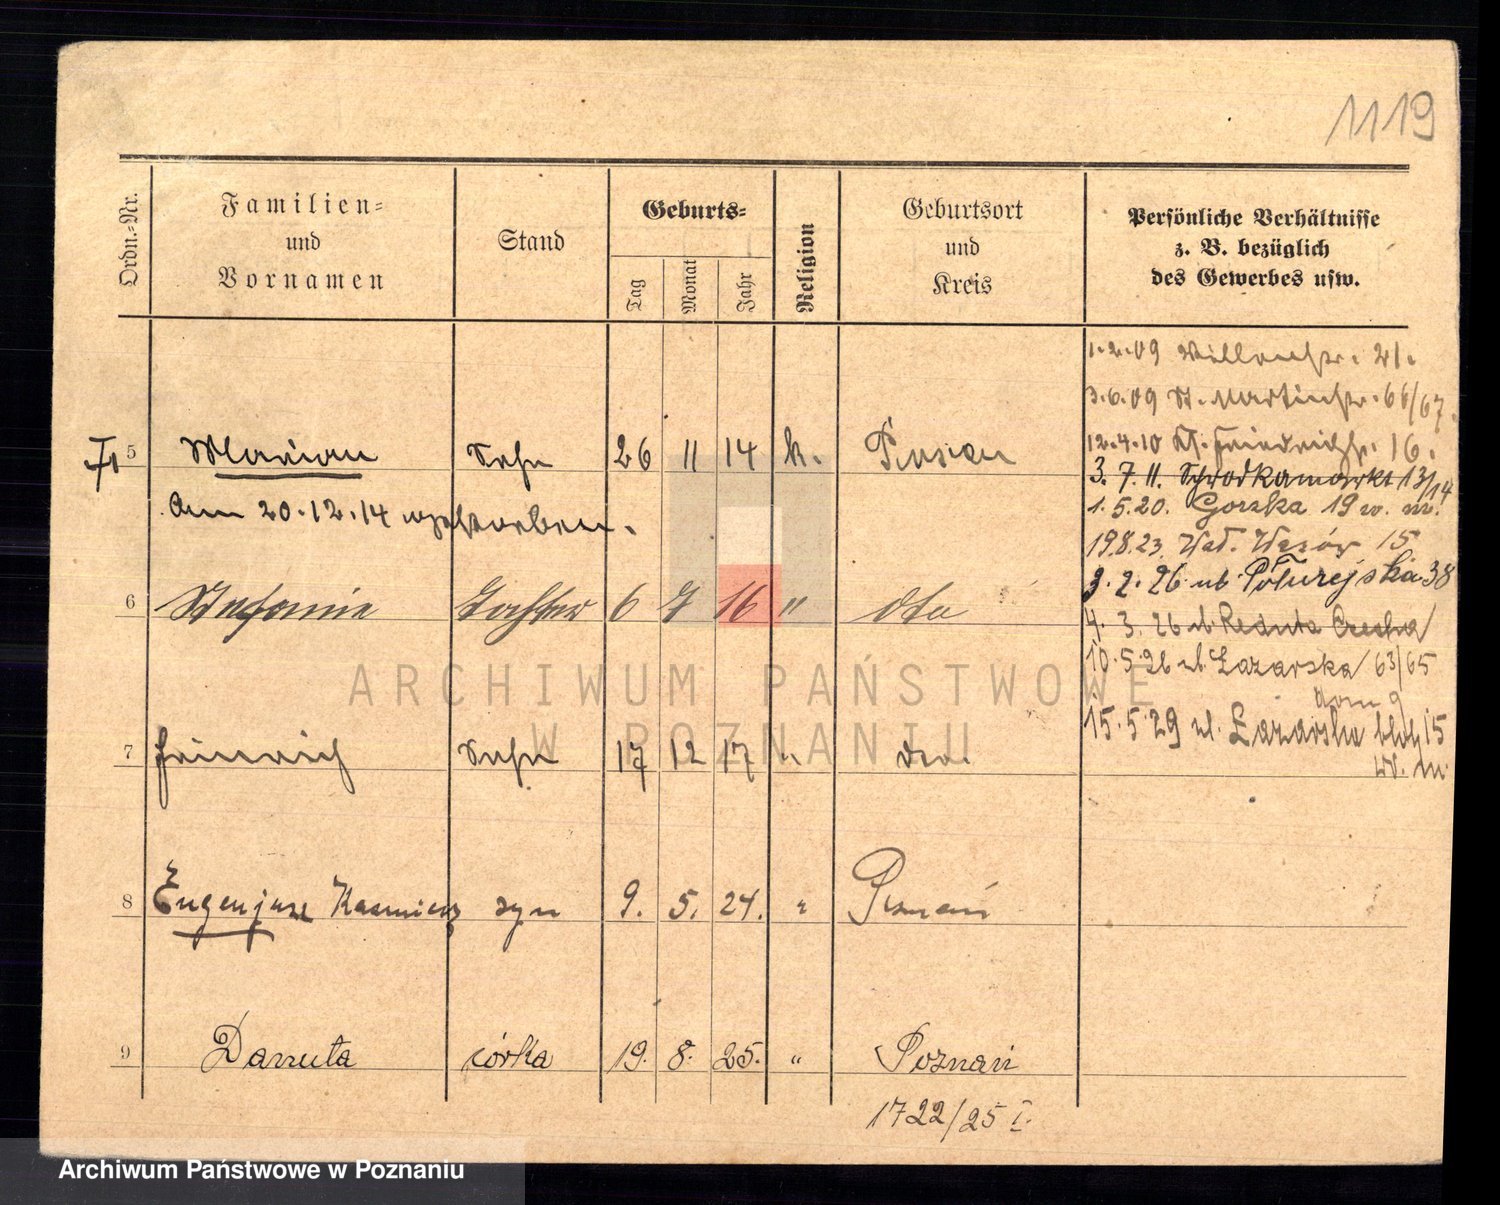 1119
Ordn.-Nr.
Familien-
und
Vornamen
Stand
Geburts-
Tag
Monat
Jahr
Religion
Geburtsort
und
Kreis
Persönliche Verhältnisse
z. B. bezüglich
des Gewerbes usw.
1.2.09 21.
3.6.09 St. Martinstr. 66/67.
12.4.10 16.
5 Marian Sohn 26 11 14 k. Posen
3. 7. 11. Schrodkamarkt 13/14
Am 20.12.14 verstorben.
1.5.20. Gorska 19 w. m.
19.8.23. 15
3. 2. 26. ul. 38
6 Stefanie Tochter 6 7 16 " dto
4. 3. 26 ul. Reduta
10.5.26 ul. Łazarska 63/65
dom 9
7 Heinrich Sohn 17 12 17 " dto.
15.5.29 ul. Łazarska blok 15
w. m.
8 Eugenjusz Kazmierz syn 9. 5. 24. " Poznań
9 Danuta córka 19. 8. 25. " Poznań
1722/25 I.
ARCHIWUM PAŃSTWOWE
W POZNANIU
Archiwum Państwowe w Poznaniu